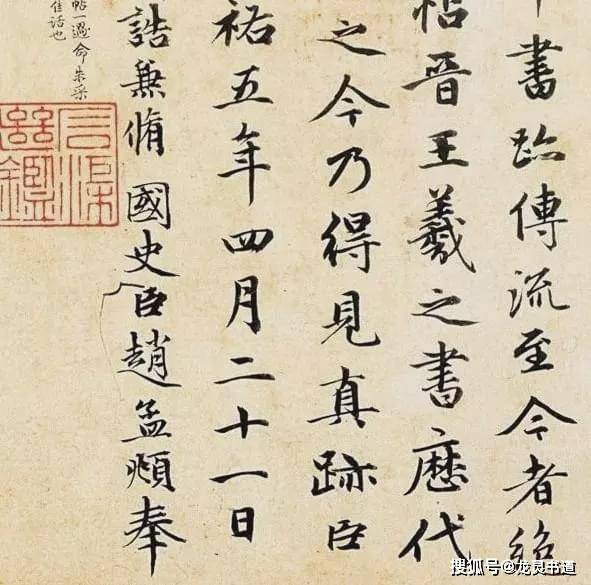 書跡傳流至今者絕
帖晉王羲之書歷代
之今乃得見真跡臣
祐五年四月二十一日
誥兼脩國史臣趙孟頫奉
帖一過命朱采
佳话也
搜狐号@龙灵书道